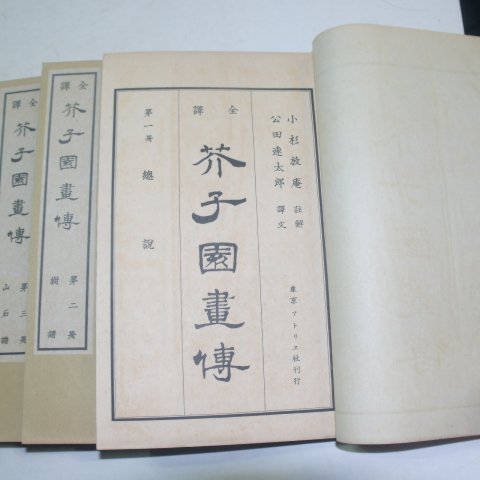 小杉放庵 註解
公田連太郎 譯文
東京アトリエ社刊行
全譯
芥子園畫傳
第一册 總說
全譯
芥子園畫傳
第二册
樹譜
全譯
芥子園畫傳
第三册
山石譜